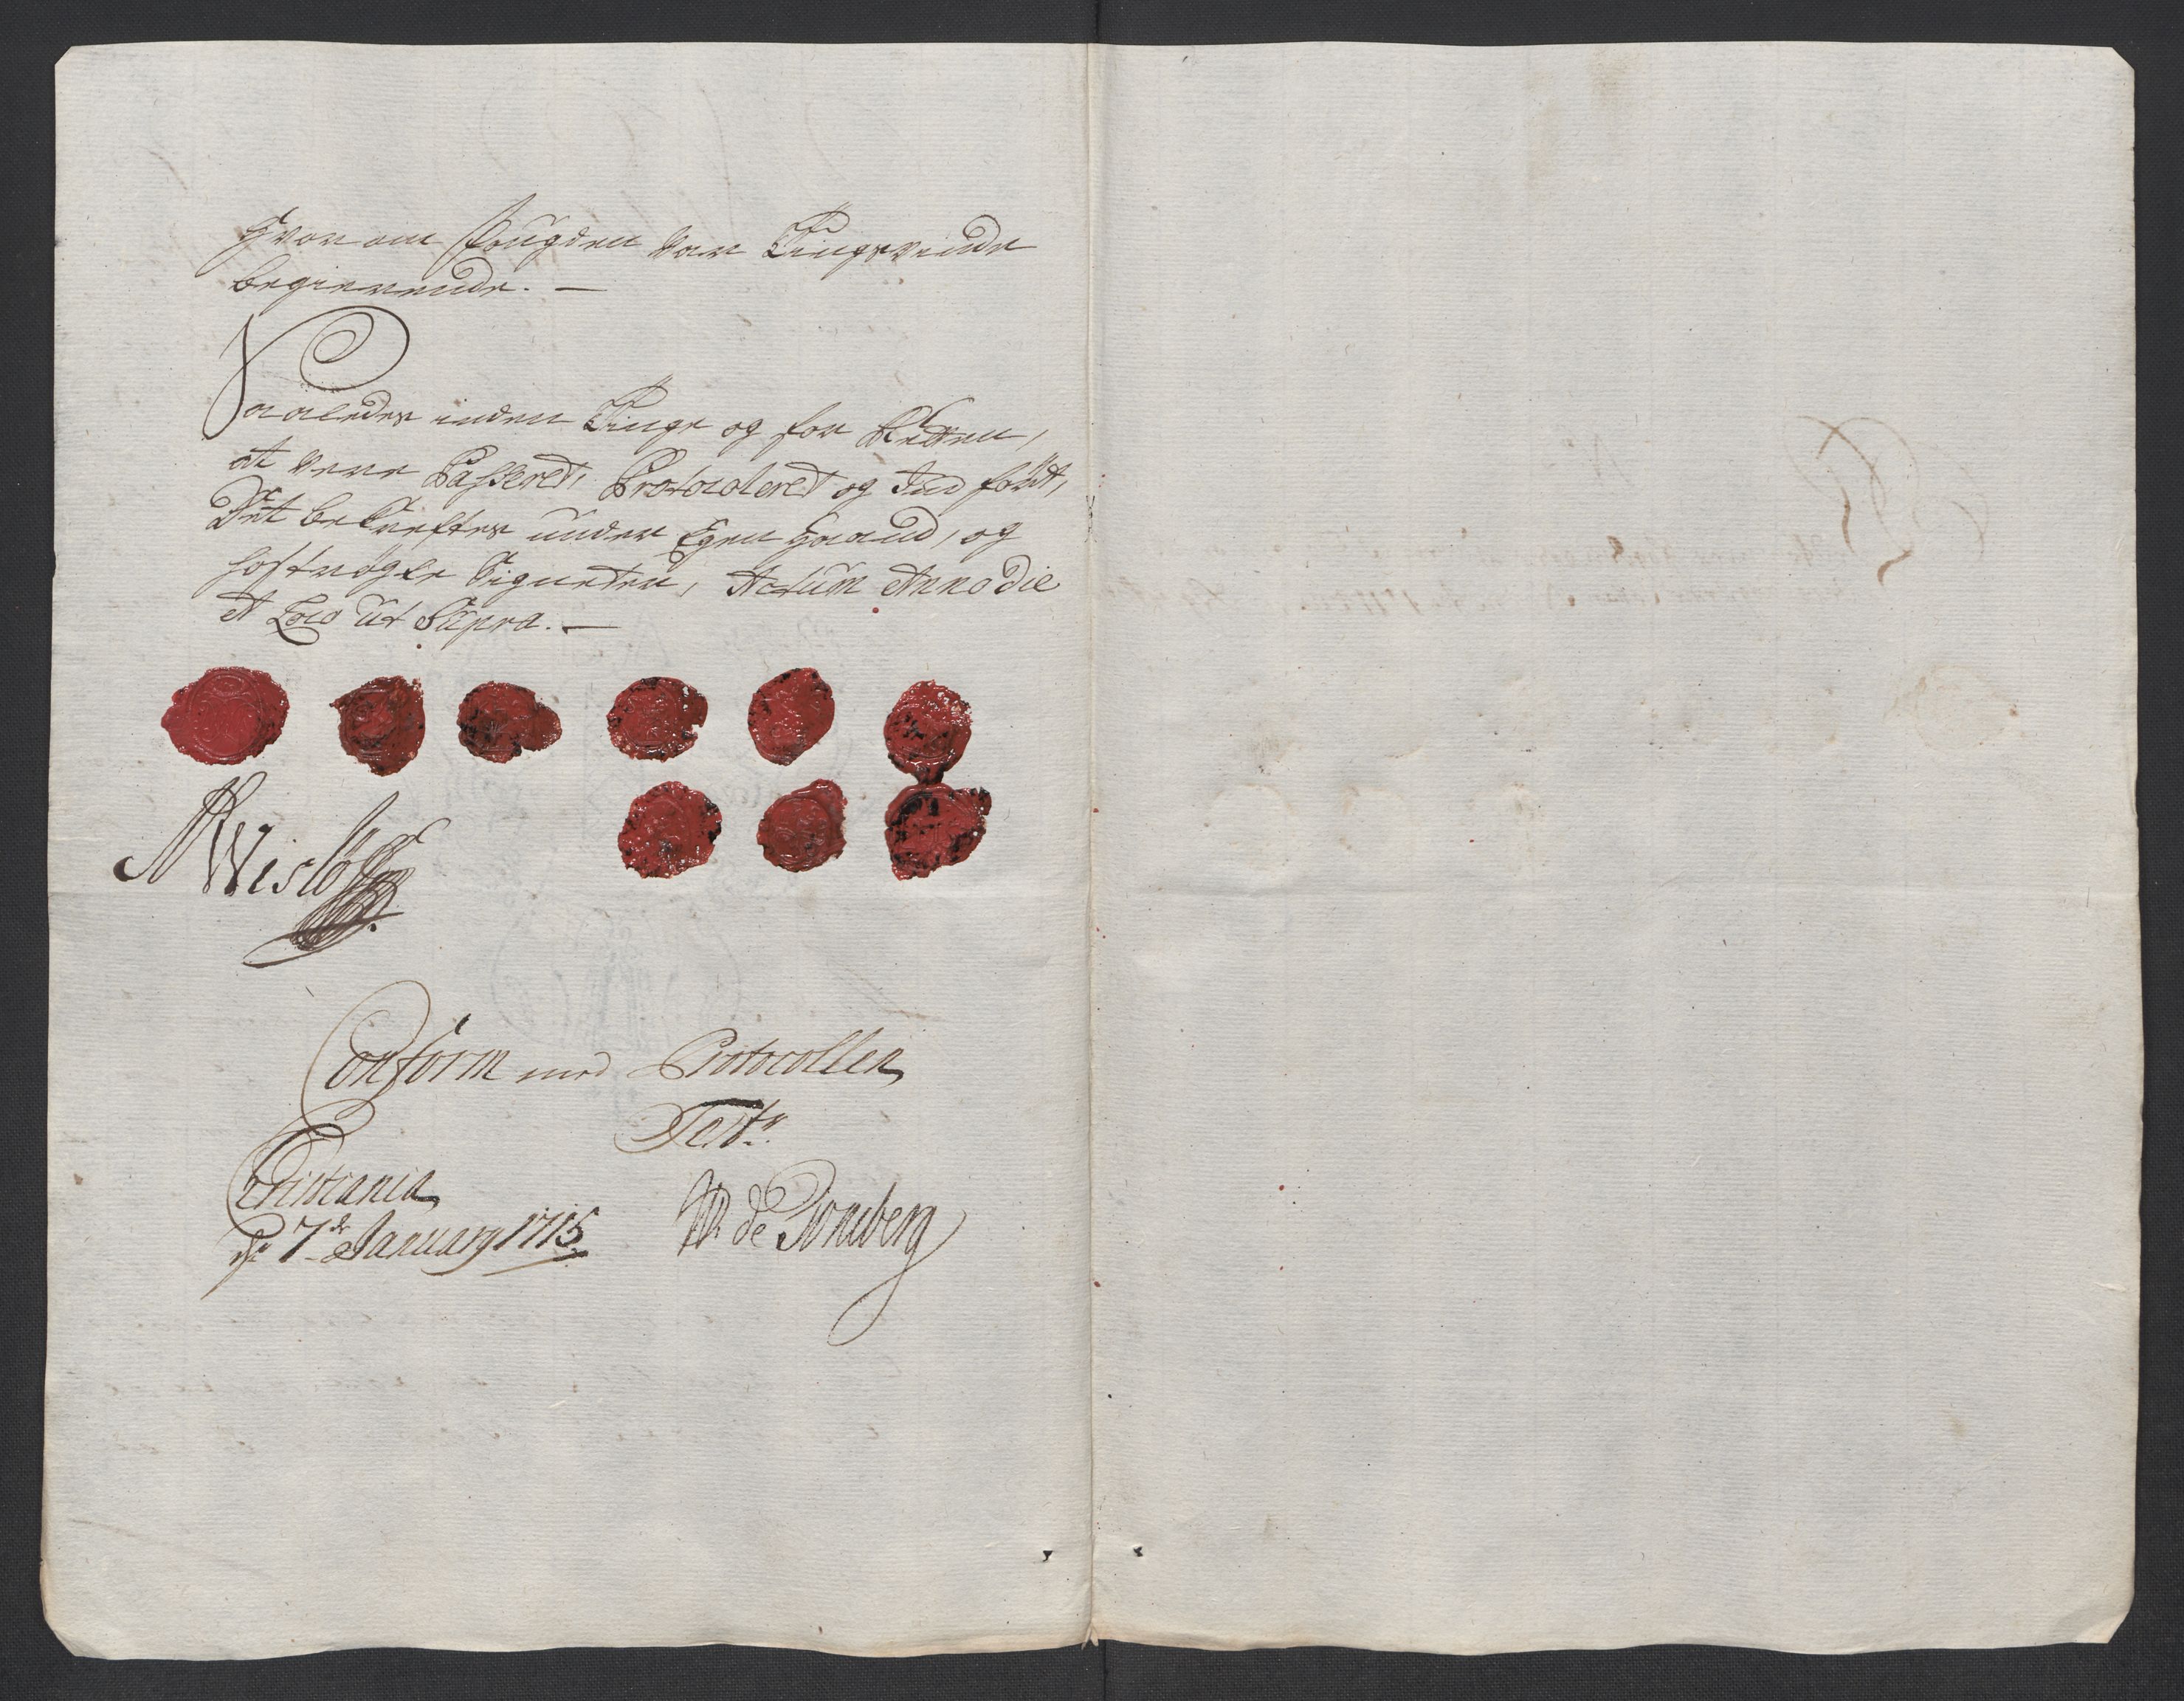 Hvor om Fougden var Tingsvinde
begierende. —
Saaledes inden Tinge og for Retten,
at vere Passeret, Protocoleret og Ind ført,
Det becrefter under Egen Haand, og
hostrøgte Signeter, Actum Anno Die
et Loco ut Supra. —
Wisløff
Conform med Protocollen
Test:
Cristiania
d: 7de January 1715
W: de Tonsberg